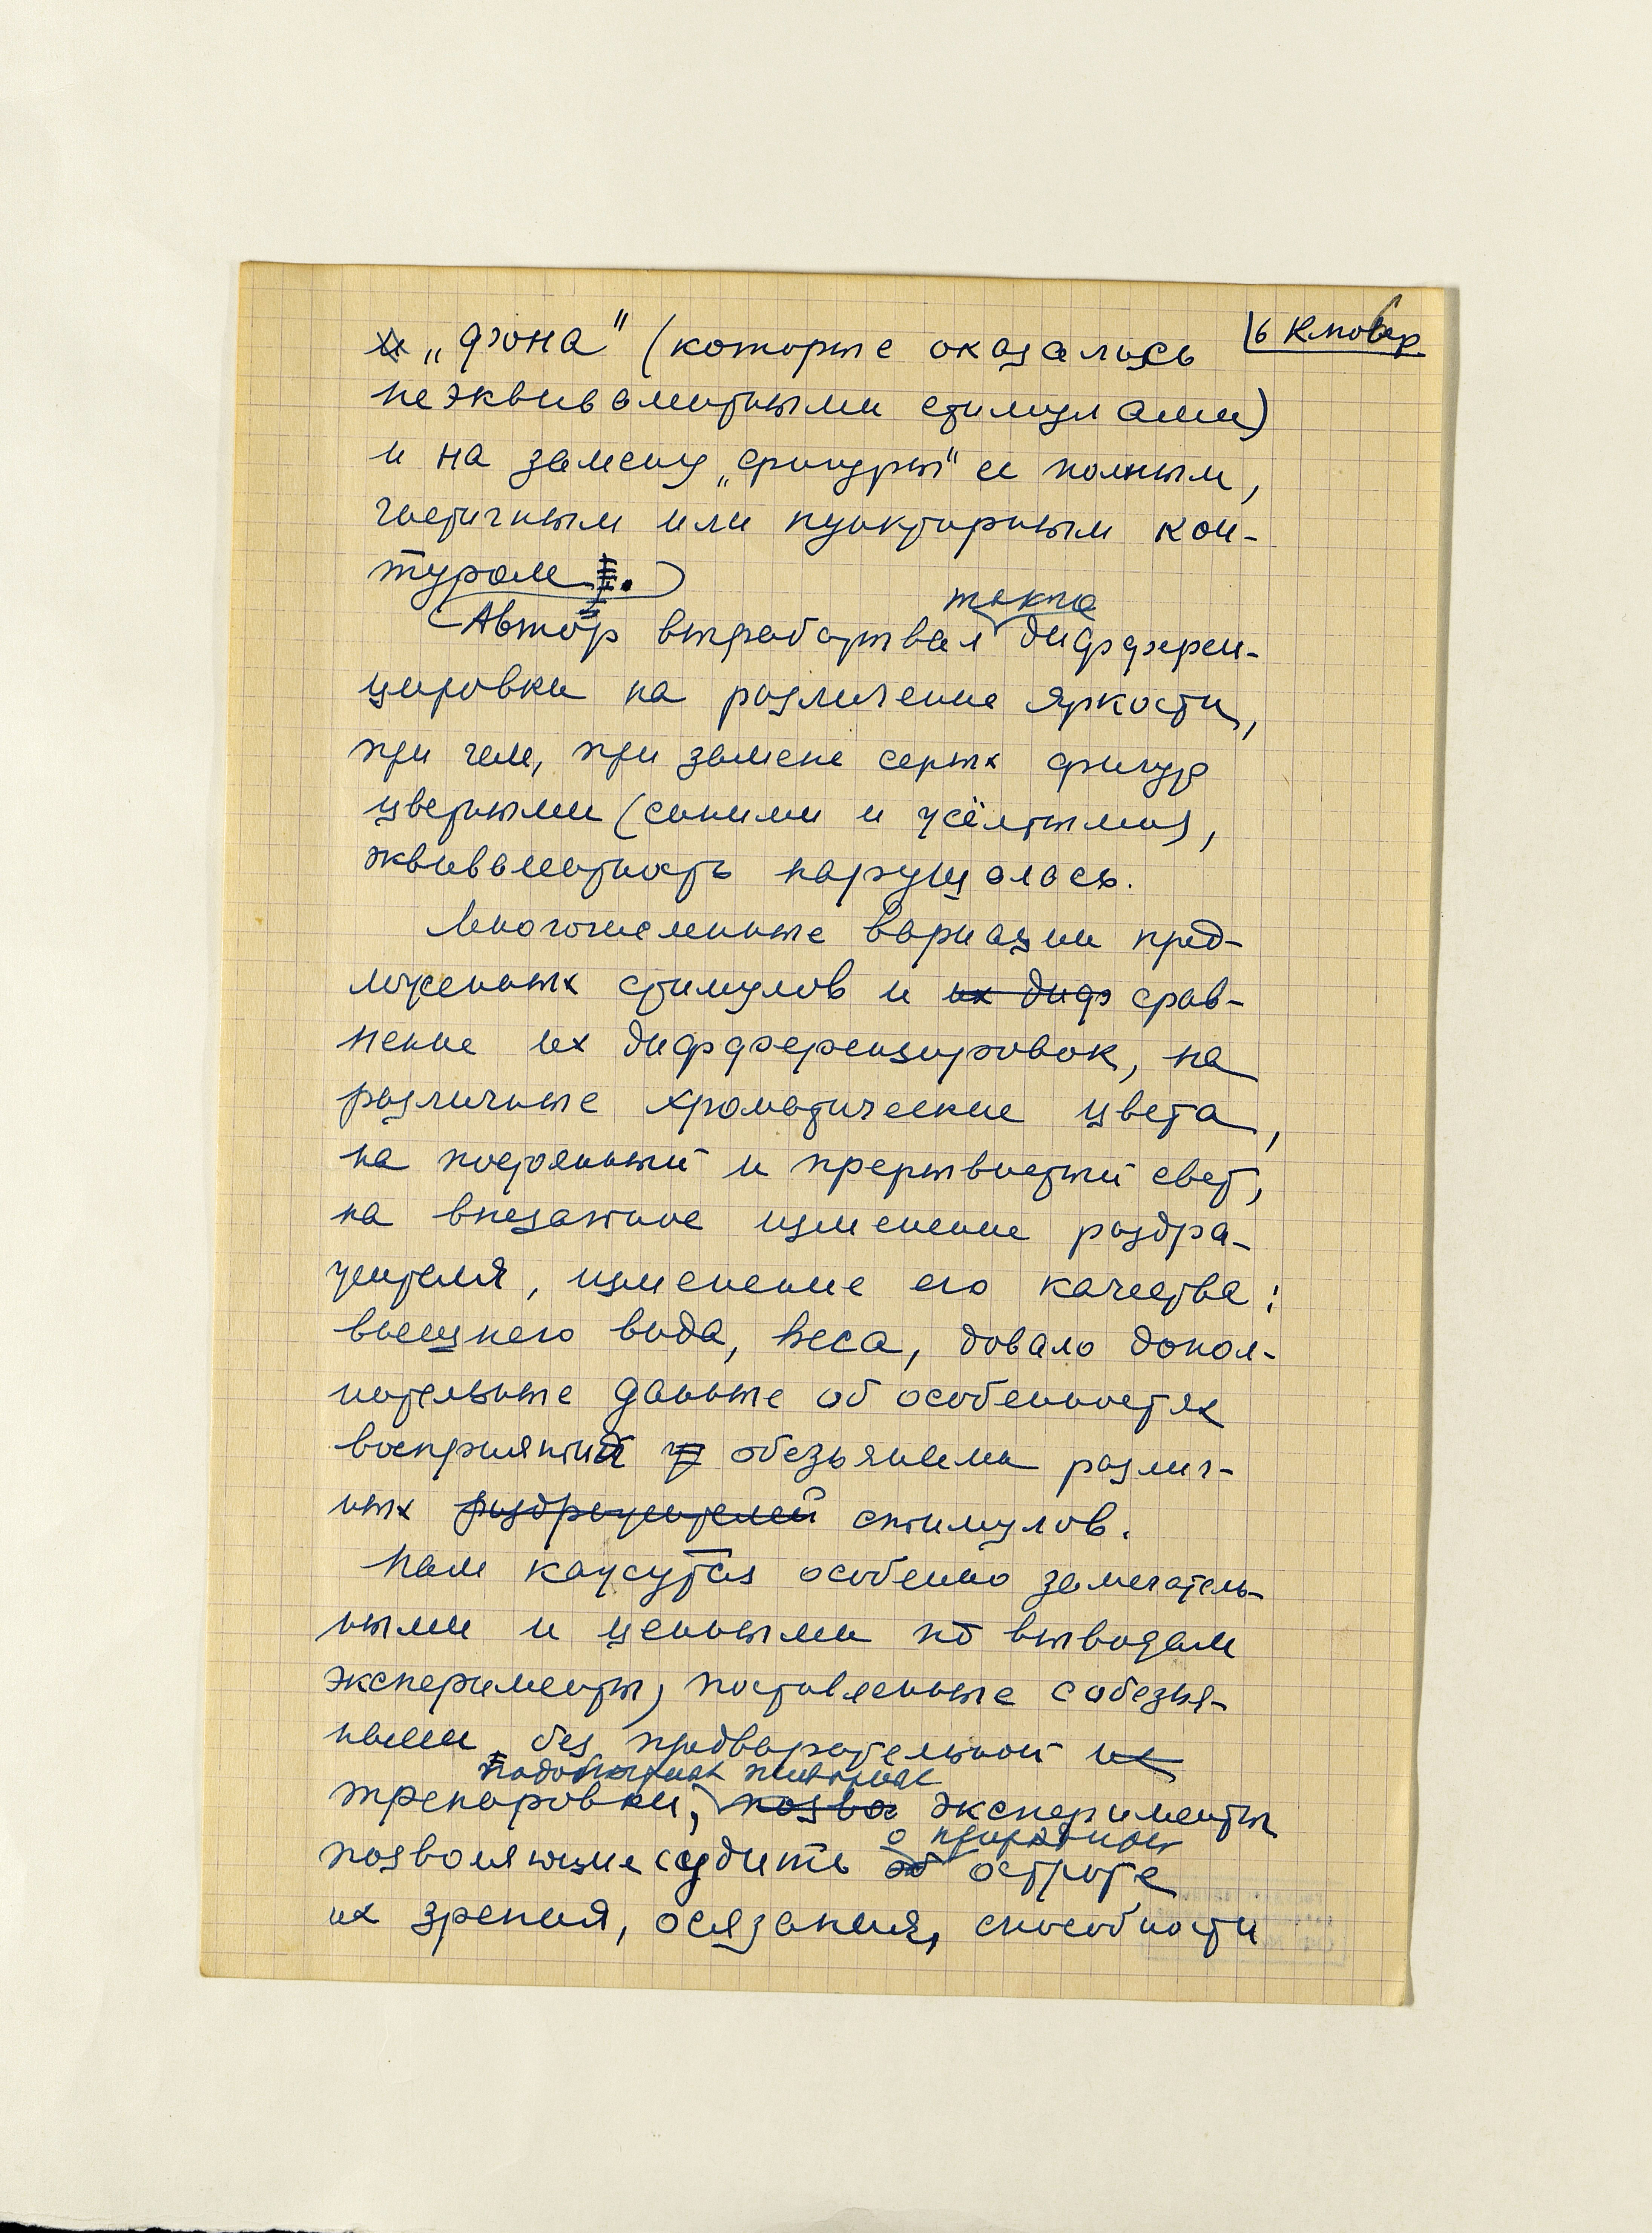 6 Клювер
и „фона" (которые оказались
неэквивалентными стимулами)
и на замену „фигуры" ее полным,
частичным или пунктирным кон-
туром.
также
Автор вырабатывал дифферен-
цировки на различение яркости,
при чем, при замене серых фигур
цветными (синими и жёлтыми),
эквивалентность нарушалась.
Многочисленные вариации пред-
ложенных стимулов и их диф срав-
нение их дифференцировок, на
различные хроматические цвета,
на постоянный и прерывистый свет,
на внезапное изменение раздра-
жителя, изменение его качества:
внешнего вида, веса, давало допол-
нительные данные об особенностях
восприятий обезьянами различ-
ных раздражителей стимулов.
Нам кажутся особенно замечатель-
ными и ценными по выводам
эксперименты, поставленные с обезья-
нами без предварительной их
тренировки, позво эксперименты
о
позволяющие судить об остроте
их зрения, осязания, способности